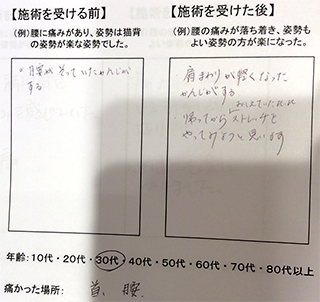 【施術を受ける前】
(例)腰に痛みがあり、姿勢は猫背
の姿勢が楽な姿勢でした。
・腰が そっていたかんじが
する
【施術を受けた後】
(例)腰の痛みが落ち着き、姿勢も
よい姿勢の方が楽になった。
・肩まわりが軽くなった
かんじがする
おしえていただいた
・帰ってから ストレッチを
やってみようと思います
年齢:10代・20代・30代・40代・50代・60代・70代・80代以上
痛かった場所: 首、腰